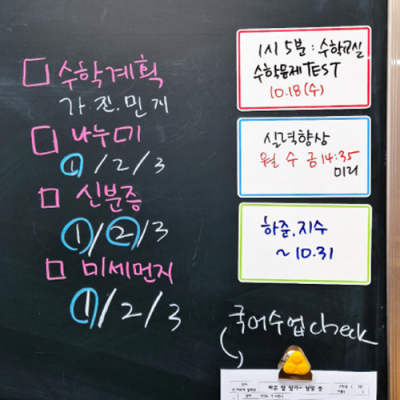 □ 수학계획
가.진.민.기
□ 나누미
1/2/3
□ 신분증
1/2/3
□ 미세먼지
1/2/3
1시 5분 : 수학교실
수학문제 TEST
10.18(수)
실력향상
월 수 금 14:35
미리
하준.지수
~10.31
국어수업 check